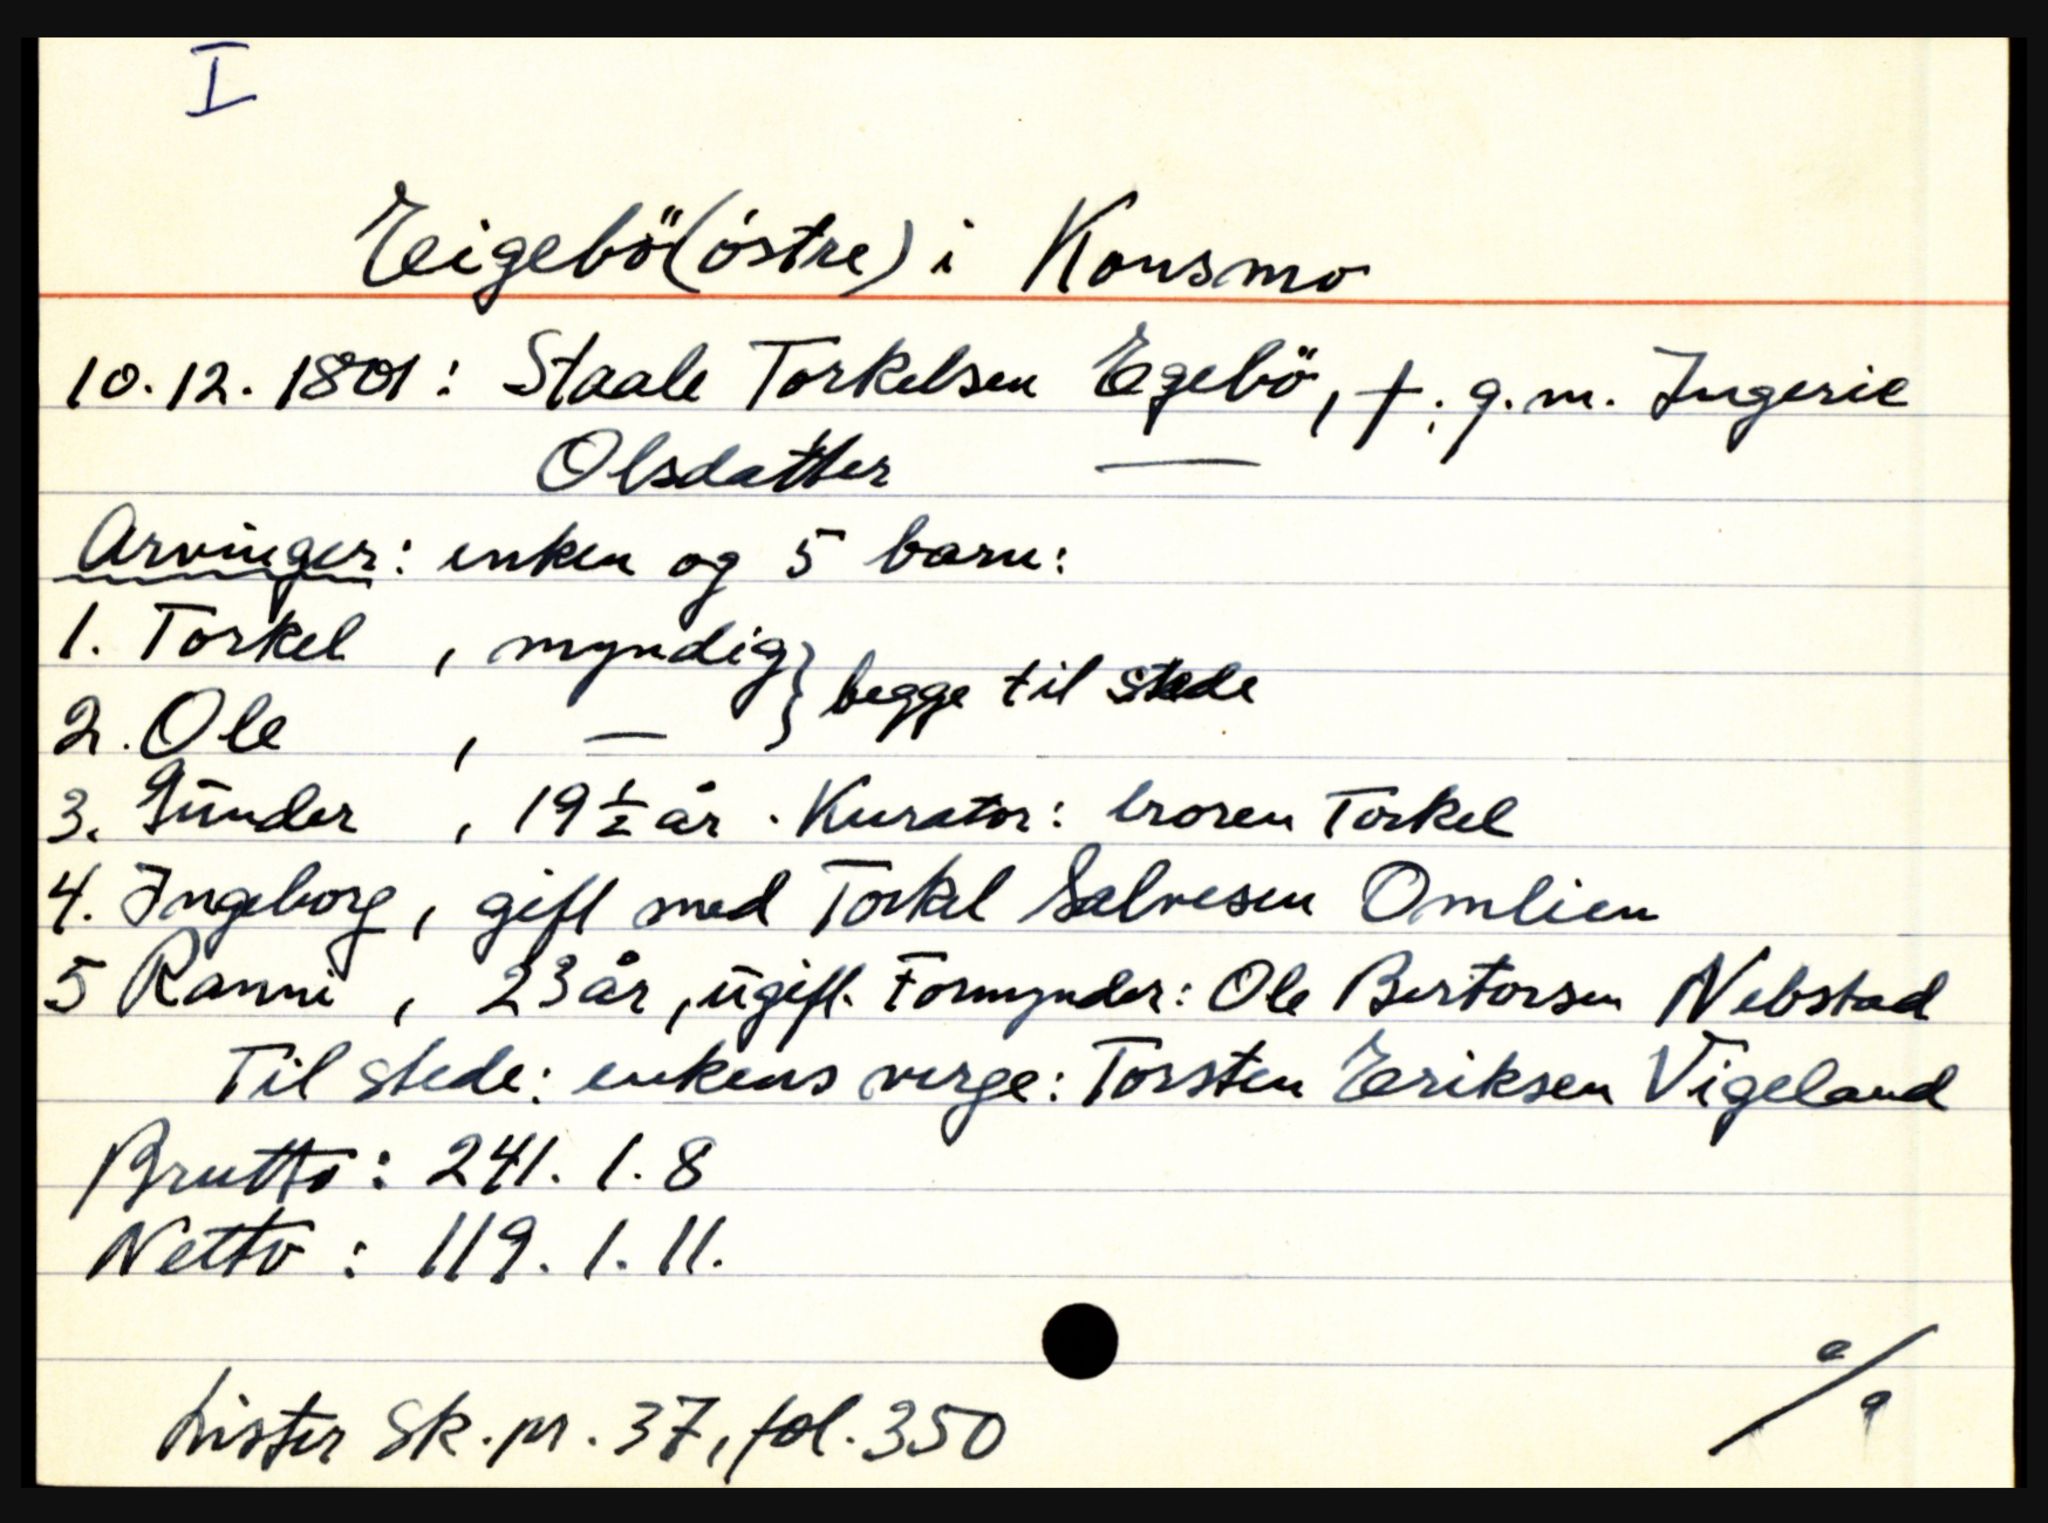 I
Eigebö (östre) i Konsmo
10.12.1801: Staale Torkelsen Egebö, †, g.m. Ingerie
Olsdatter —
Arvinger: enken og 5 barn:
1. Torkel , myndig } begge til stede
2. Ole , — }
3. Gunder , 19½ år. Kurator: broren Torkel
4. Ingeborg, gift med Torkel Salvesen Omlien
5 Ranni , 23 år, ugift. Formynder: Ole Bertorsen Nebstad
Til stede: enkens verge: Torsten Eriksen Vigeland
Brutto: 241. 1. 8
Netto : 119. 1. 11.
Lister Sk.pr. 37, fol. 350